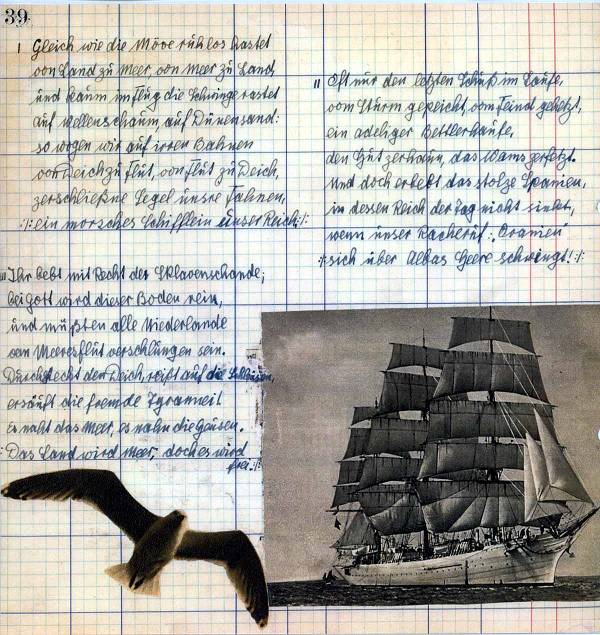 39
I Gleich wie die Möve ruhlos hastet
von Land zu Meer, von Meer zu Land,
und kaum im Flug die Schwinge rastet
auf Wellenschaum, auf Dünensand:
so wogen wir auf irren Bahnen
von Deich zu Flut, von Flut zu Deich,
zerschlißne Segel unsre Fahnen,
:/: ein morsches Schifflein unser Reich :/:
II Oft nur den letzten Schuß im Laufe,
vom Sturm gepeicht, vom Feind gehetzt,
ein adeliger Bettlerhaufe,
den Hut zerhaun, das Wams zerfetzt.
Und doch erbebt das stolze Spanien,
in dessen Reich der Tag nicht sinkt,
wenn unser Racheruf: "Oranien"
:/: sich über Albas Heere schwingt! :/:
III Ihr bebt mit Recht der Sklavenschande;
bei Gott wird dieser Boden rein,
und müßten alle Niederlande
von Meeresflut verschlungen sein.
Durchstecht den Deich, reißt auf die Schleusen,
ersäuft die fremde Tyrannei!
Es naht das Meer, es nahn die Geusen.
:/: Das Land wird Meer, doch es wird
frei. :/: